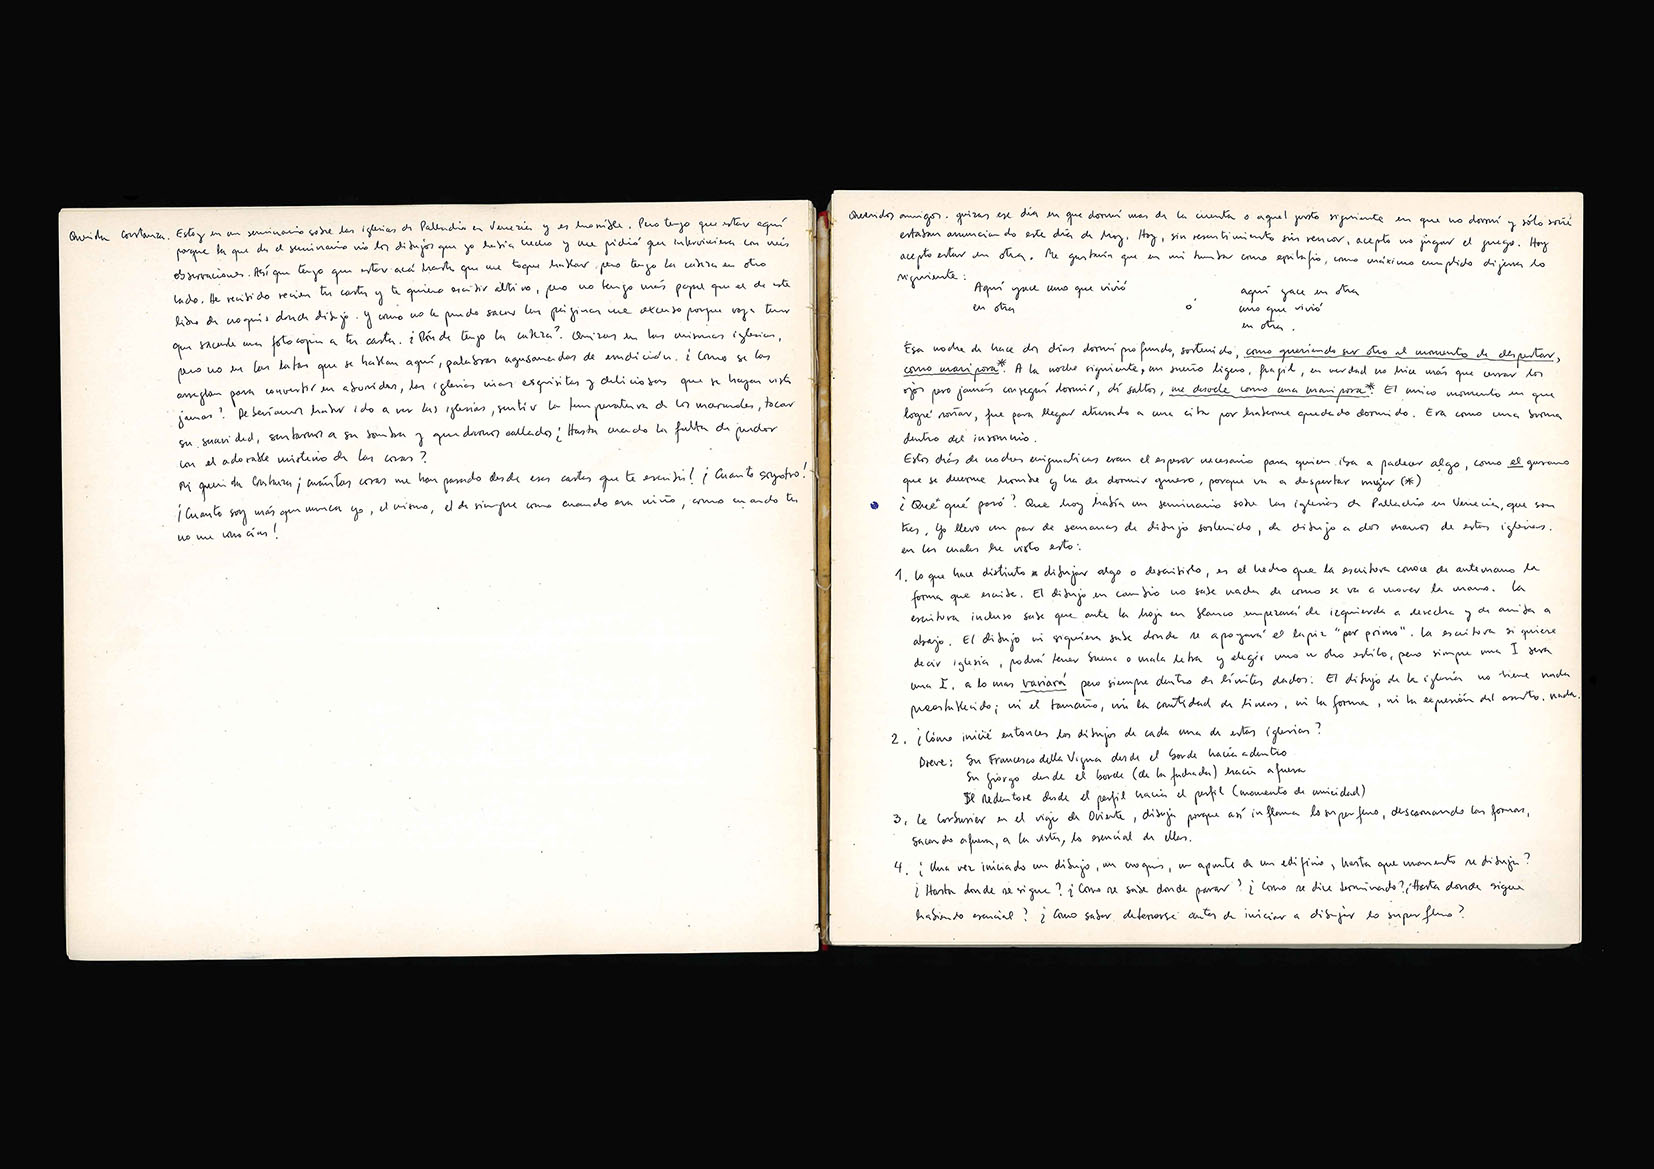 Querida Constanza. Estoy en un seminario sobre las iglesias de Palladio en Venecia y es horrible. Pero tengo que estar aquí
porque la que da el seminario vio los dibujos que yo había hecho y me pidió que interviniera con mis
observaciones. Así que tengo que estar acá hasta que me toque hablar pero tengo la cabeza en otro
lado. He recibido recien tu carta y te quiero escribir altiro, pero no tengo más papel que el de este
libro de croquis donde dibujo. y como no le puedo sacar las páginas me excuso porque voy a tener
que sacarle una fotocopia a tu carta. ¿Dónde tengo la cabeza? Quizas en las mismas iglesias,
pero no en las latas que se hablan aquí, palabras agusanadas de erudición. ¿Como se las
arreglan para convertir en aburridas, las iglesias mas esquisitas y deliciosas que se hayan visto
jamas? Deberíamos haber ido a ver las iglesias, sentir la temperatura de los marmoles, tocar
su suavidad, sentarnos a su sombra y quedarnos callados ¿Hasta cuando la falta de pudor
con el adorable misterio de las cosas?
Mi querida Constanza ¡cuántas cosas me han pasado desde esas cartas que te escribí! ¡Cuanto soy otro!
¡Cuanto soy más que nunca yo, el mismo, el de siempre como cuando era niño, como cuando tu
no me conocías!
Queridos amigos. quizas ese día en que dormí mas de la cuenta o aquel justo siguiente en que no dormí y sólo soñé
estaban anunciando este día de hoy. Hoy, sin resentimiento sin rencor, acepto no jugar el juego. Hoy
acepto estar en otra. Me gustaría que en mi tumba como epitafio, como máximo cumplido dijera lo
siguiente:
Aquí yace uno que vivió
en otra
ó
aquí yace en otra
uno que vivió
en otra.
Esa noche de hace dos días dormí profundo, sostenido, como queriendo ser otro al momento de despertar,
como mariposa*. A la noche siguiente, un sueño ligero, fragil, en verdad no hice más que cerrar los
ojos pero jamás conseguí dormir, dí saltos, me desvele como una mariposa* El unico momento en que
logré soñar, fue para llegar atrasado a una cita por haberme quedado dormido. Era como una broma
dentro del insomnio.
Estos días de noches enigmaticas eran el espesor necesario para quien iba a padecer algo, como el gusano
que se duerme hombre y ha de dormir grueso, porque va a despertar mujer (*)
¿Qué qué pasó? Que hoy había un seminario sobre las iglesias de Palladio en Venecia, que son
tres. Yo llevo un par de semanas de dibujo sostenido, de dibujo a dos manos de estas iglesias.
en las cuales he visto esto:
1. lo que hace distinto a dibujar algo o describirlo, es el hecho que la escritura conoce de antemano la
forma que escribe. El dibujo en cambio no sabe nada de como se va a mover la mano. La
escritura incluso sabe que ante la hoja en blanco empezará de izquierda a derecha y de arriba a
abajo. El dibujo ni siquiera sabe donde se apoyará el lapiz "per primo". La escritura si quiere
decir iglesia, podrá tener buena o mala letra y elegir uno u otro estilo, pero siempre una I sera
una I. a lo mas variará pero siempre dentro de límites dados. El dibujo de la iglesia no tiene nada
preestablecido; ni el tamaño, ni la cantidad de lineas, ni la forma, ni la expresión del asunto. nada.
2. ¿Cómo inicié entonces los dibujos de cada una de estas iglesias?
Breve: Sn Francesco della Vigna desde el borde hacia adentro
Sn Giorgo desde el borde (de la fachada) hacia afuera
Il Redentore desde el perfil hacia el perfil (momento de unicidad)
3. Le Corbusier en el viaje de Oriente, dibuja porque así inflama lo superfluo, descarnando las formas,
sacando afuera, a la vista, lo esencial de ellas.
4. ¿Una vez iniciado un dibujo, un croquis, un apunte de un edificio, hasta que momento se dibuja?
¿Hasta donde se sigue? ¿Como se sabe donde parar? ¿Como se dice terminado? ¿Hasta donde sigue
habiendo esencial? ¿Como saber detenerse antes de iniciar a dibujar lo superfluo?